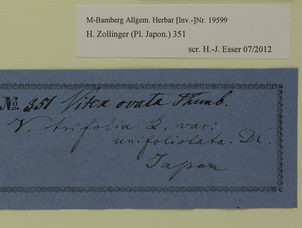 M-Bamberg Allgem. Herbar [Inv.-]Nr. 19599
H. Zollinger (Pl. Japon.) 351
scr. H.-J. Esser 07/2012
№ 351 Vitex ovata Thunb.
V. trifolia L. var:
unifoliolata. DC.
Japan